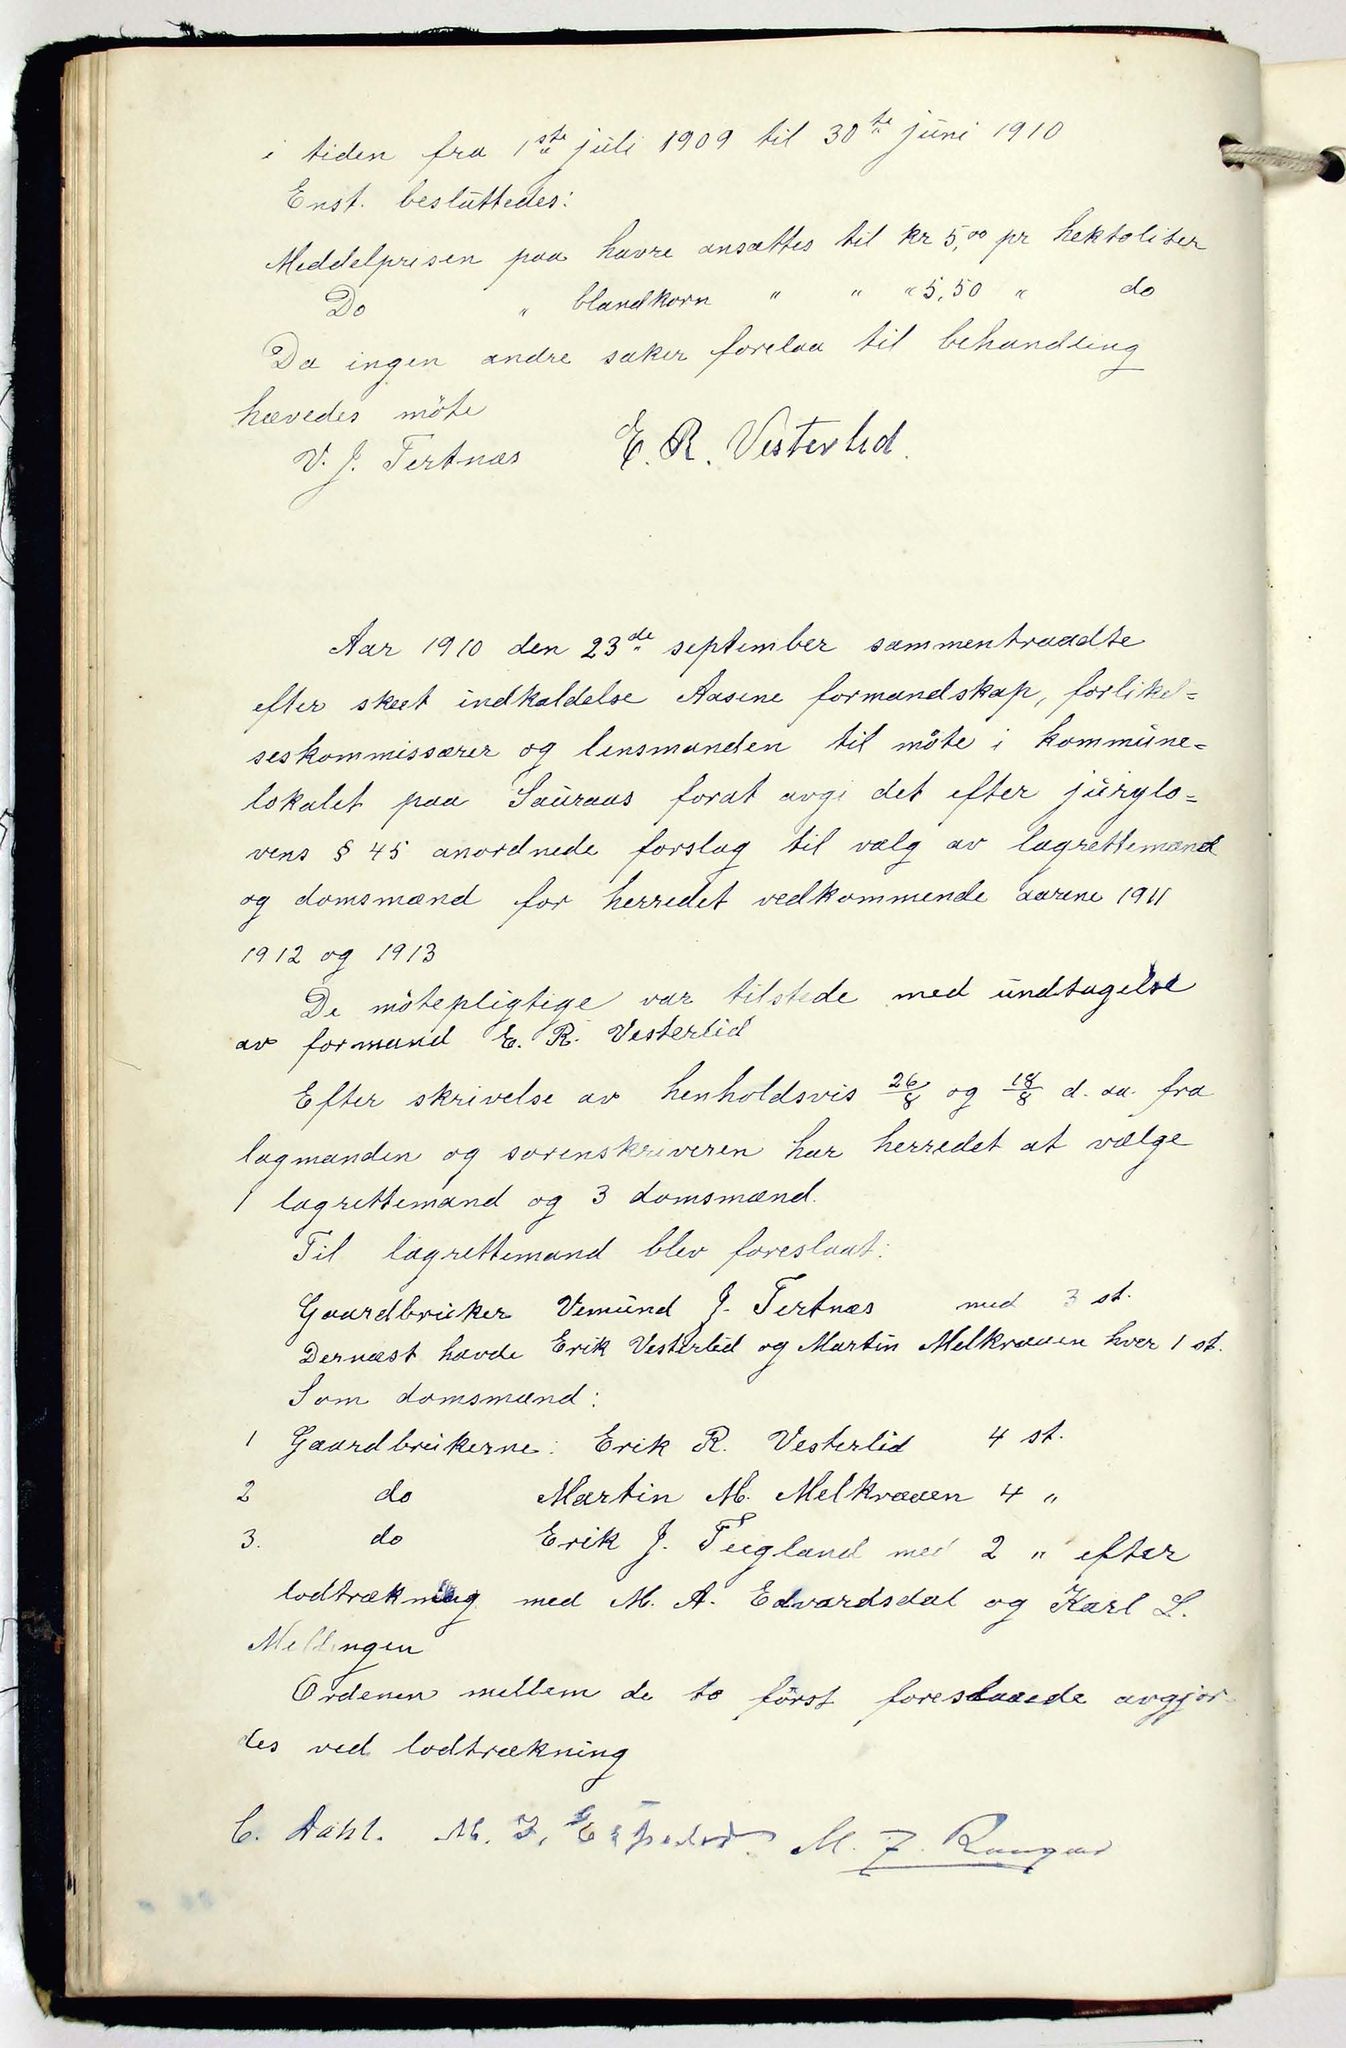 i tiden fra 1ste juli 1909 til 30te juni 1910
Enst. besluttedes:
Middelprisen paa havre ansættes til kr 5,00 pr hektoliter
Do " blandkorn " " " 5,50 " do
Da ingen andre saker forelaa til behandling
hævedes möte
V. J. Tertnæs E. R. Vesterlid.
Aar 1910 den 23de september sammentraadte
efter skeet indkaldelse Aasene formandskap, forlikel=
seskommissærer og lensmanden til möte i kommune=
lokalet paa Sauraas forat avgi det efter jurylo=
vens § 45 anordnede forslag til valg av lagrettemænd
og domsmænd for herredet vedkommende aarene 1911
1912 og 1913
De mötepligtige var tilstede med undtagelse
av formand E. R. Vesterlid
Efter skrivelse av henholdsvis 26/8 og 18/8 d. aa. fra
lagmanden og sorenskriveren har herredet at vælge
1 lagrettemand og 3 domsmænd.
Til lagrettemand blev foreslaat:
Gaardbruker Vemund J. Tertnæs med 3 st.
Dernæst havde Erik Vesterlid og Martin Melkraaen hver 1 st.
Som domsmænd:
1 Gaardbrukerne: Erik R. Vesterlid 4 st.
2 do Martin M. Melkraaen 4 "
3. do Erik J. Teigland med 2 " efter
lodtrækning med M. A. Edvardsdal og Karl L.
Mellingen
Ordenen mellem de to först foreslaaede avgjor-
des ved lodtrækning
C. Dahl. M. J. M. J. Rangaas